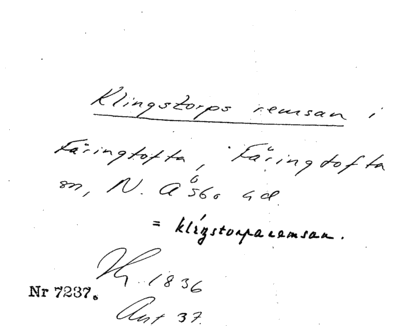 Klingstorps remsan i
Färingtofta, Färingtofta
sn, N. Åsbo hd.
= klingstorparemsan.
1836
Nr 7237.
Ant 37.